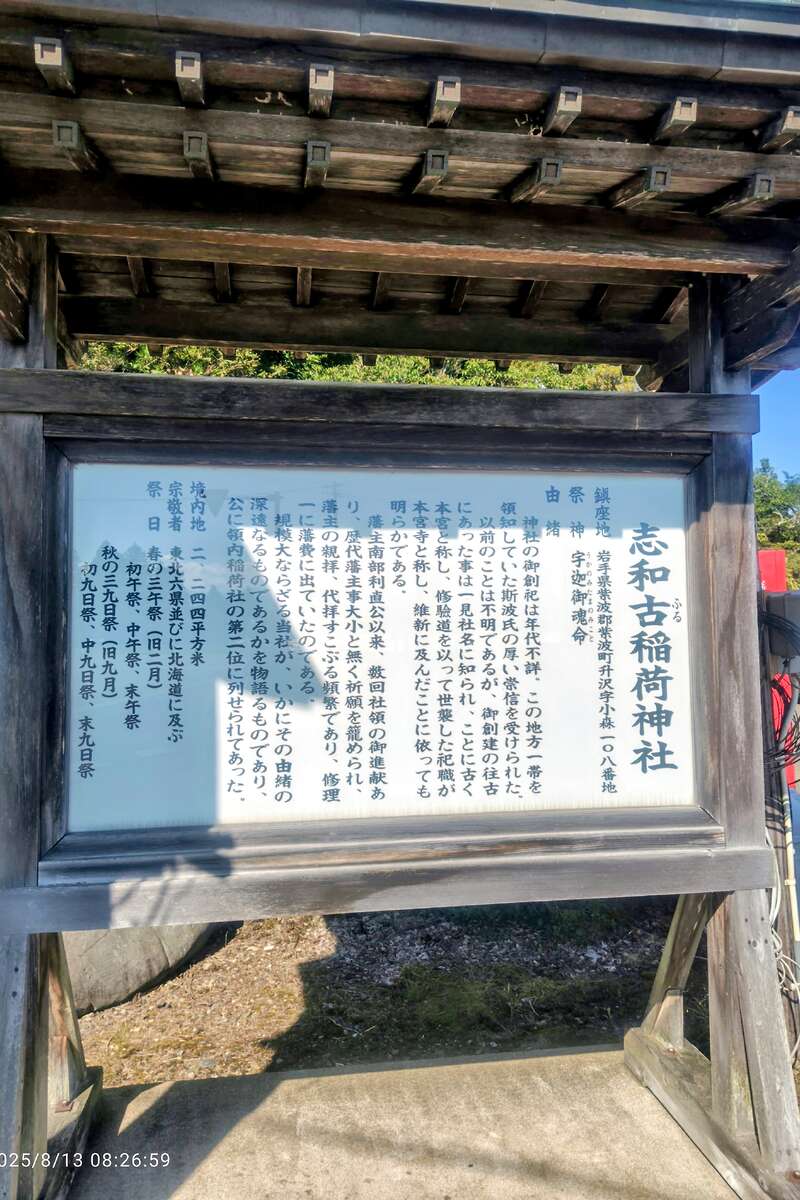 志和古稲荷神社
ふる
鎮座地 岩手県紫波郡紫波町升沢字小森一〇八番地
祭神 宇迦御魂命
うかのみたまのみこと
由緒
神社の御創祀は年代不詳、この地方一帯を
領知していた斯波氏の厚い崇信を受けられた。
以前のことは不明であるが、御創建の往古
にあった事は一見社名に知られ、ことに古く
本宮と称し、修験道を以って世襲した祀職が
本宮寺と称し、維新に及んだことに依っても
明らかである。
藩主南部利直公以来、数回社領の御進献あ
り、歴代藩主事大小と無く祈願を籠められ、
藩主の親拝、代拝すこぶる頻繁であり、修理
一に藩費に出ていたのである。
規模大ならざる当社が、いかにその由緒の
深遠なるものであるかを物語るものであり、
公に領内稲荷社の第二位に列せられてあった。
境内地 二、二四四平方米
宗敬者 東北六県並びに北海道に及ぶ
祭日 春の三午祭(旧二月)
初午祭、中午祭、末午祭
秋の三九日祭(旧九月)
初九日祭、中九日祭、末九日祭
025/8/13 08:26:59